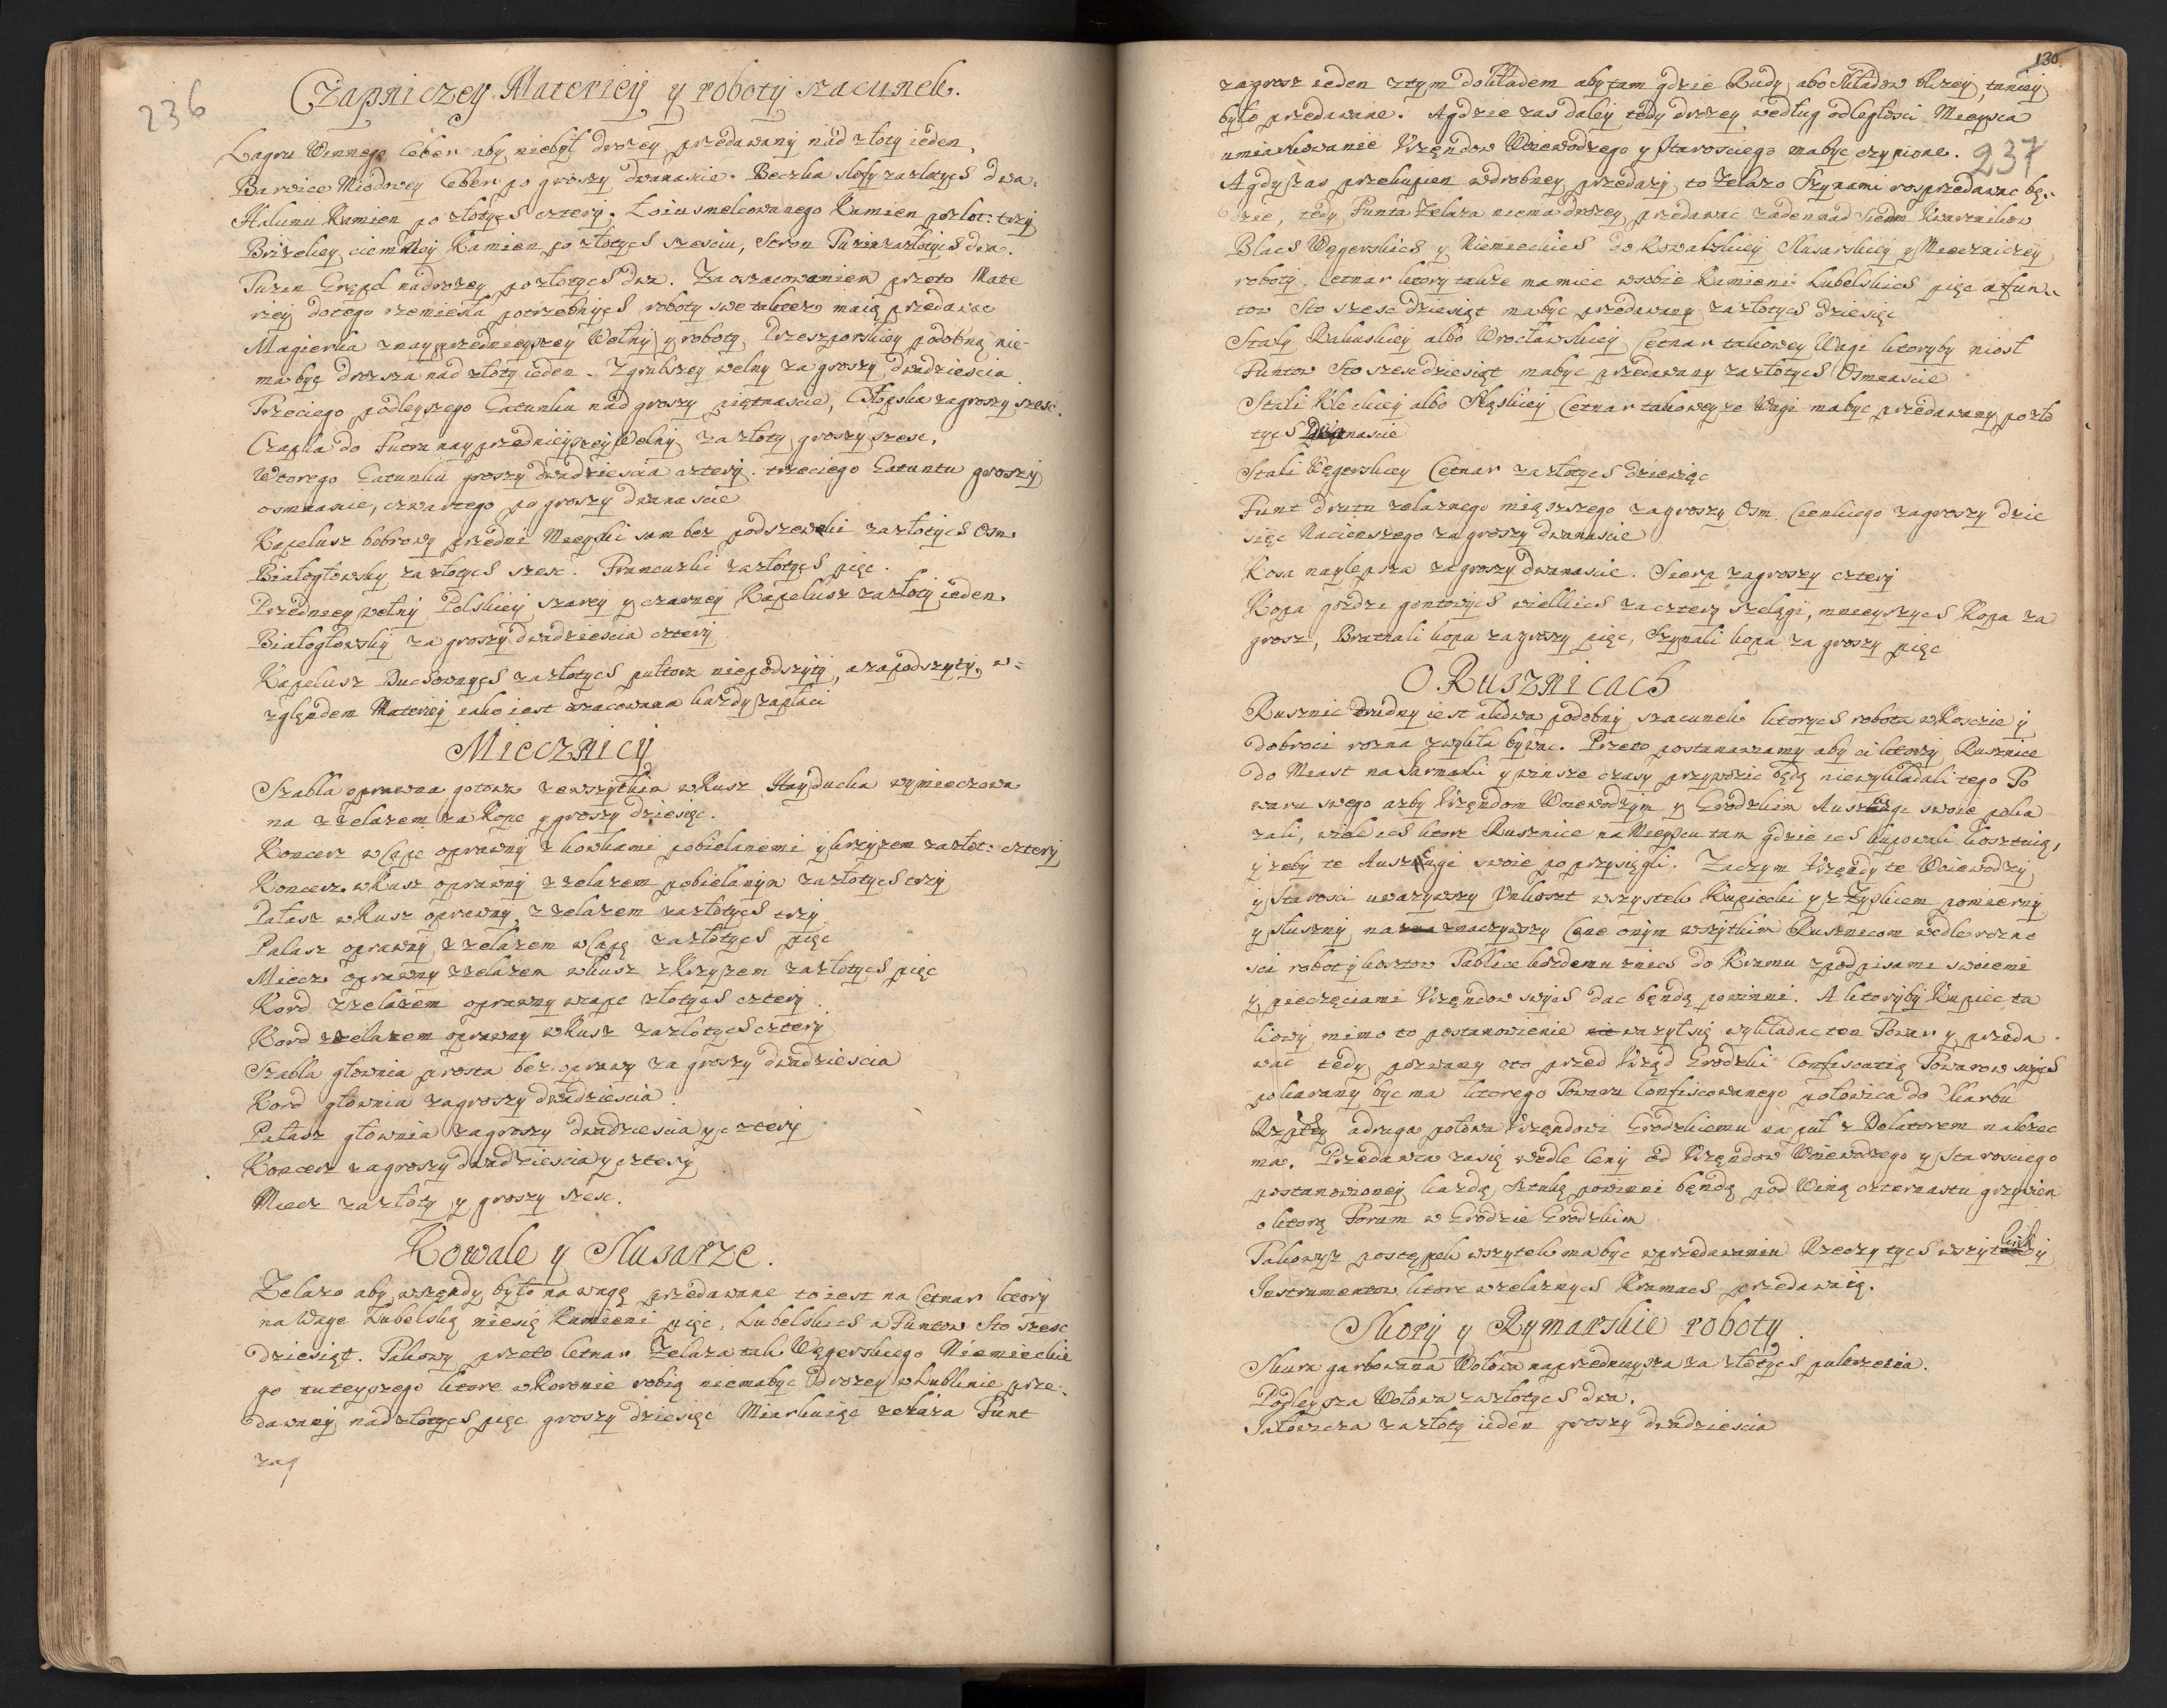 236
Czapniczey Materiey y roboty szacunek.
Lagru Winnego Ceber aby niebył drozey przedawany nad złoty ieden,
Barwice Miodowey Ceber po groszy dwanascie. Beczka slefy zazłotych dwa.
Hałunu Kamien po złotych cztery. Łoiu smelcowanego Kamien pozłot: trzy
Brizeliey ciemney Kamien po złotych szesciu, Stron Tuzin zazłotych dwa.
Tuzin Grępel nadrozey po złotych dwa. Za oszacowaniem przeto Mate
riey dotego rzemiesła potrzebnych roboty swe takteż maią przedawac
Magierka znayprzednieyszey Wełny y roboty Preszporskiey podobną nie-
ma być drozsza nad złoty ieden. Zgrubszey wełny za groszy dwadziescia
Trzeciego podleyszego Gatunku nad groszy piętnascie, Chłopska zagroszy szesc.
Czapka do Futra nayprzednieyszey Wełny za złoty groszy szesc,
Wtorego Gatunku groszy dwadziescia cztery. trzeciego Gatuntu groszy
osmnascie, czwartego po groszy dwanascie
Kapelusz bobrowy przedni Męyski sam bez podszewki zazłotych Osm.
Białogłowsky za złotych szesc. Francuzki zazłotych pięc.
Przedniey wełny Polskiey szarey y czarney Kapelusz zazłoty ieden.
Białogłowsky za groszy dwadziescia cztery
Kapelusz Duchownych zazłotych pułtora niepodszyty, a zapodszyty, w=
zględem Materiey iako iest szacowana kazdy zapłaci
Miecznicy
Szabla oprawna gotowa zewszytkim wkusz Hayducka wymieczowa
na zzelazem za Kopę y groszy dziesięc.
Koncerz w Capę oprawny z kowkami pobielanemi y krzyzem zazłot: cztery
Koncerz wKusz oprawny zzelazem pobielanym zazłotych trzy
Pałasz wKusz oprawny z zelazem zazłotych trzy
Pałasz oprawny zzelazem wCapę zazłotych pięc
Miecz oprawny zzelazem wkusz zKrzyzem zazłotych pięc
Kord zzelazem oprawny wcapę złotych cztery
Kord zzelazem oprawny wKusz zazłotych cztery
Szabla głownia prosta bez oprawy za groszy dwadziescia
Kord głownia zagroszy dwadziescia
Pałasz głownia zagroszy dwadziescia y cztery
Koncerz zagroszy dwadziescia y cztery
Miecz zazłoty y groszy szesc.
Kowale y Slusarze.
Zelazo aby wszędy było na wagę przedawane to iest na Cetnar ktory
na Wagę Lubelską niesię Kamieni pięc, Lubelskich a Funtow Sto szesc
dziesiąt. Takowy przeto Cetnar Zelaza tak Węgerskiego Niemieckie
go tuteyszego ktore wKoronie robią niemabyc drozey w Lublinie prze-
dawany nad złotych pięc groszy dziesięc Miarkuiąc zelaza Funt
zag
130.
zagrosz ieden ztym dokładem aby tam gdzie Rudy abo Składow blizey, taniey
było przedawane. Agdzie zas daley tedy drozey według odległosci Mieysca
umiarkowanie Urzędow Woiewodzego y Starosciego mabyc czynione. 237
Agdyzas przekupien wdrobney przedazy to Zelazo Szynami rosprzedawac bę-
dzie, tedy Funta Zelaza niema drozey przedawac zaden nad siedm Kwartnikow
Blach Węgerskich y Niemieckich do Kowalskiey Slusarskiey y Mieczniczey
roboty. Cetnar ktory takze ma miec wsobie Kamieni Lubelskich pięc a fun-
tow Sto szesc dziesiąt mabyc przedawany zazłotych dziesięc
Staly Rakuskiey albo Wrocławskiey Cetnar takowey Wagi ktoryby niosł
Funtow Sto szescdziesiąt mabyc przedawany zazłotych Osmnascie
Stali Kleckiey albo Sląskiey Cetnar takoweyze Wagi mabyc przedawany pozło
tych nascie
Stali Węgerskiey Cetnar zazłotych dziewięc
Funt drutu zelaznego miązszego zagroszy Osm Cienkiego zagroszy dzie
sięc Nacienszego za groszy dwanascie
Kosa naylepsza zagroszy dwanascie. Sierp zagroszy cztery
Kopa gozdzi gontowych wielkich za cztery szelągi, mnieyszych Kopa za
grosz, Bratnali kopa zagroszy pięc, Szynali kopa za groszy pięc
O Rusznicach
Rusznic trudny iest aledwa podobny szacunek ktorych robota wKoscie y
dobroci rozna zwykła bywac. Przeto postanawiamy aby ci ktorzy Rusznice
do Miast na Jarmarki y winsze czasy przywozic będą niewykładali tego To
waru swego azby Urzędom Woiewodzym y Grodzkim Auszcugi swoie poka
zali, wiele ich ktore Rusznice na Mieyscu tam gdzie ich kupowali kosztuią,
y zeby te Auszcugi swoie poprzysięgli. Zaczym Urzędy te Woiewodzy
y Starosci uwazywszy Unkoszt wszystek Kupiecki y z Zyskiem pomierny
y słuszny naznaczywszy Cenę onym wszytkim Rusznicom wedle rozno
sci roboty kosztow Tablice kozdemu znich do Kramu zpodpisami swoiemi
y pieczęciami Urzędow swych dac będą powinni. A ktoryby Kupiec ta
kowy mimo to postanowienie wazyłsię wykładac ten Towar y przeda
wac tedy pozwany oto przed Urząd Grodzki Confiscatią Towarow swych
pokarany byc ma ktorego Towaru Confiscowanego połowica do Skarbu
Rzpltey adruga połowa Urzędowi Grodzkiemu na puł z Delatorem nalezec
ma. Przedawca zasię wedle Ceny od Urzędow Woiewodzego y Starosciego
postanowioney kazdą Sztukę powinni będą pod Winą czternastu grzywien
o ktorą Forum w Grodzie Grodzkim
Takowyz postępek wszytek mabyc wprzedawaniu Rzeczy tych wszytkich y
Instrumentow ktore wzelaznych Kramach przedawaią.
Skory y Rymarskie roboty
Skura garbowana Wołowa naprzednieysza za złotych pułtrzecia.
Podleysza Wołowa zazłotych dwa.
Jałowicza zazłoty ieden groszy dwadziescia